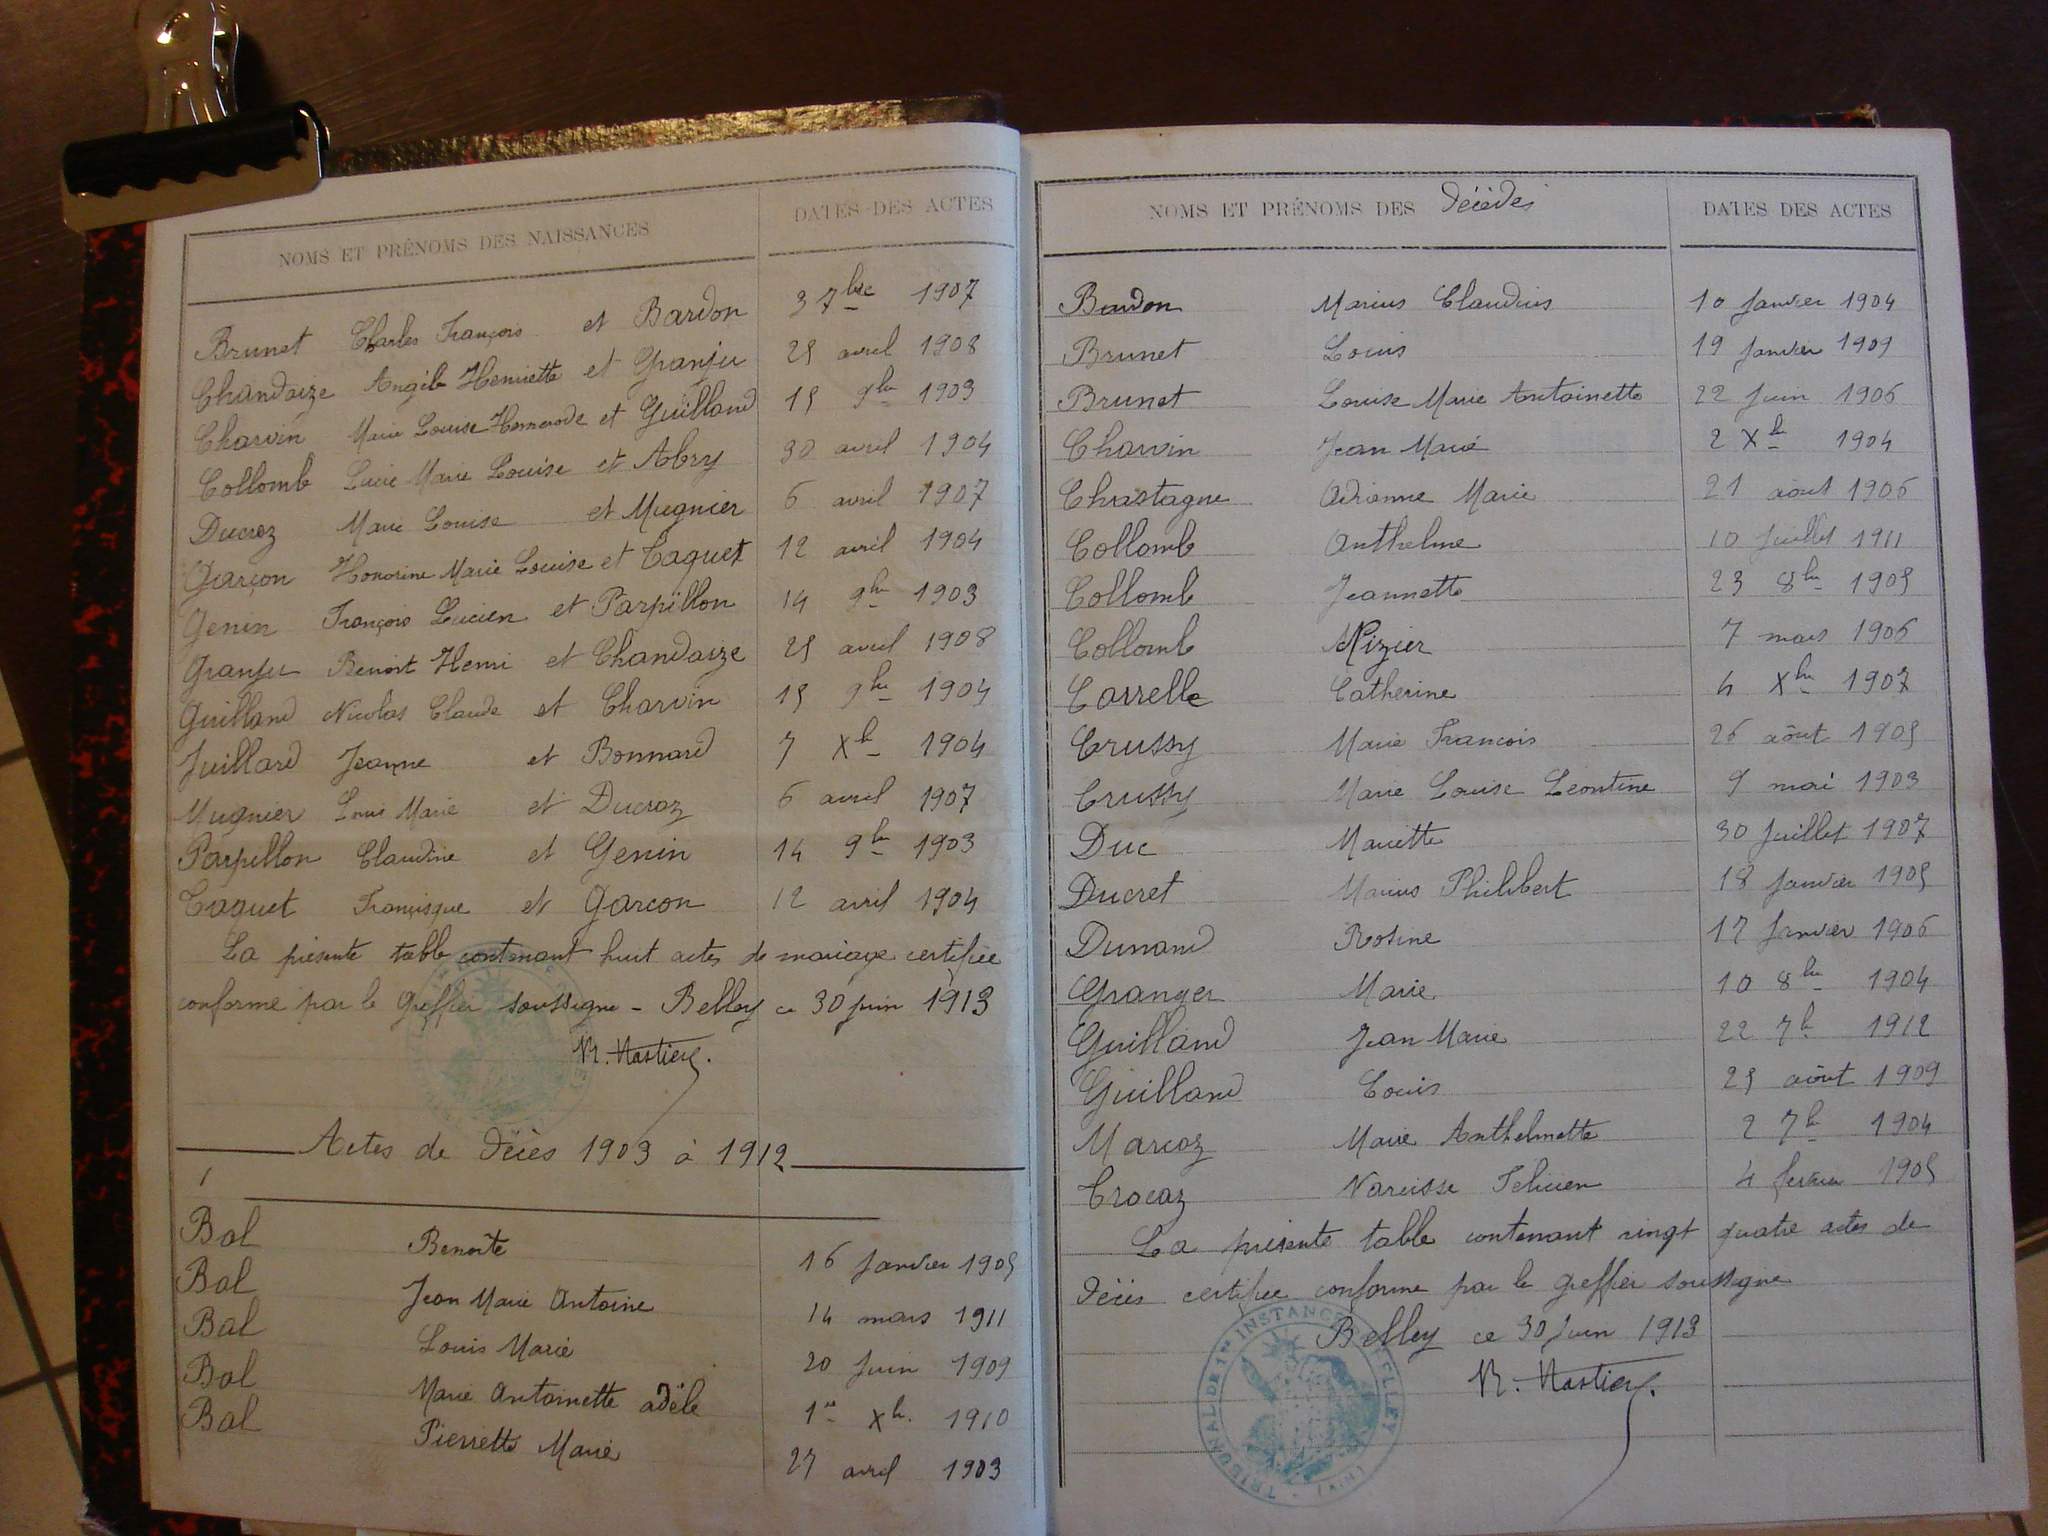 NOMS ET PRÉNOMS DES NAISSANCES DATES DES ACTES
Brunet Charles François et Bardon 3 7bre 1907
Chandaize Angèle Henriette et Granju 25 avril 1908
Charvin Marie Louise et Guilland 15 9bre 1903
Collomb Lucie Marie Louise et Abry 30 avril 1904
Ducroz Marie Louise et Mugnier 6 avril 1907
Garçon Honorine Marie Louise et Taquet 12 avril 1904
Genin François Lucien et Parpillon 14 9bre 1903
Granju Benoit Henri et Chandaize 25 avril 1908
Guilland Nicolas Claude et Charvin 15 9bre 1904
Juillard Jeanne et Bonnard 7 Xb 1904
Mugnier Louis Marie et Ducroz 6 avril 1907
Parpillon Claudine et Genin 14 9b 1903
Taquet Françisque et Garcon 12 avril 1904
La présente table contenant huit actes de mariage certifiée
conforme par le Greffier soussigné - Belley ce 30 juin 1913
Actes de Décès 1903 à 1912
Bal Benoîte 16 Janvier 1905
Bal Jean Marie Antoine 14 mars 1911
Bal Louis Marie 20 Juin 1909
Bal Marie Antoinette adèle 1er Xb. 1910
Bal Pierrette Marie 27 avril 1903
NOMS ET PRÉNOMS DES Décédés DATES DES ACTES
Bardon Marius Claudius 10 Janvier 1904
Brunet Louis 19 Janvier 1909
Brunet Louise Marie Antoinette 22 Juin 1906
Charvin Jean Marie 2 Xb 1904
Chastagne Adrienne Marie 21 août 1906
Collomb Anthelme 10 Juillet 1911
Collomb Jeannette 23 8bre 1905
Collomb Nizier 7 mars 1906
Correlle Catherine 4 Xbre 1907
Crussy Marie Francois 26 août 1905
Crussy Marie Louise Léontine 9 mai 1903
Duc Mariette 30 Juillet 1907
Ducret Marius Philibert 18 Janvier 1905
Dunand Rosine 17 Janvier 1906
Granger Marie 10 8bre 1904
Guilland Jean Marie 22 7b 1912
Guilland Louis 25 août 1909
Marcoz Marie Anthelmette 2 7b 1904
Crocaz Narcisse Felicien 4 fevrier 1905
La présente table contenant vingt quatre actes de
Décès certifiée conforme par le greffier soussigné
Belley ce 30 Juin 1913
TRIBUNAL DE 1re INSTANCE BELLEY (AIN)